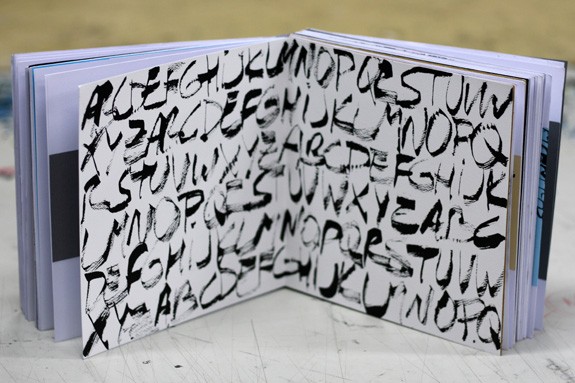 ABCDEFGHIJKLMNOPQRSTUVW
XYZABCDEFGHIJKLMNOPQ
RSTUVWXYZABCDEFGHIJK
LMNOPQRSTUVWXYZABC
DEFGHIJKLMNOPQRSTUVW
XYZABCDEFGHIJKLMNOPQ